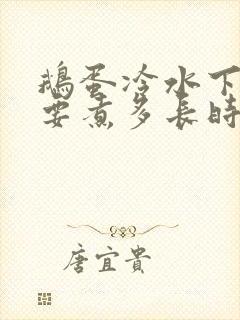 鵝蛋冷水下
要煮多長時
唐宜貴